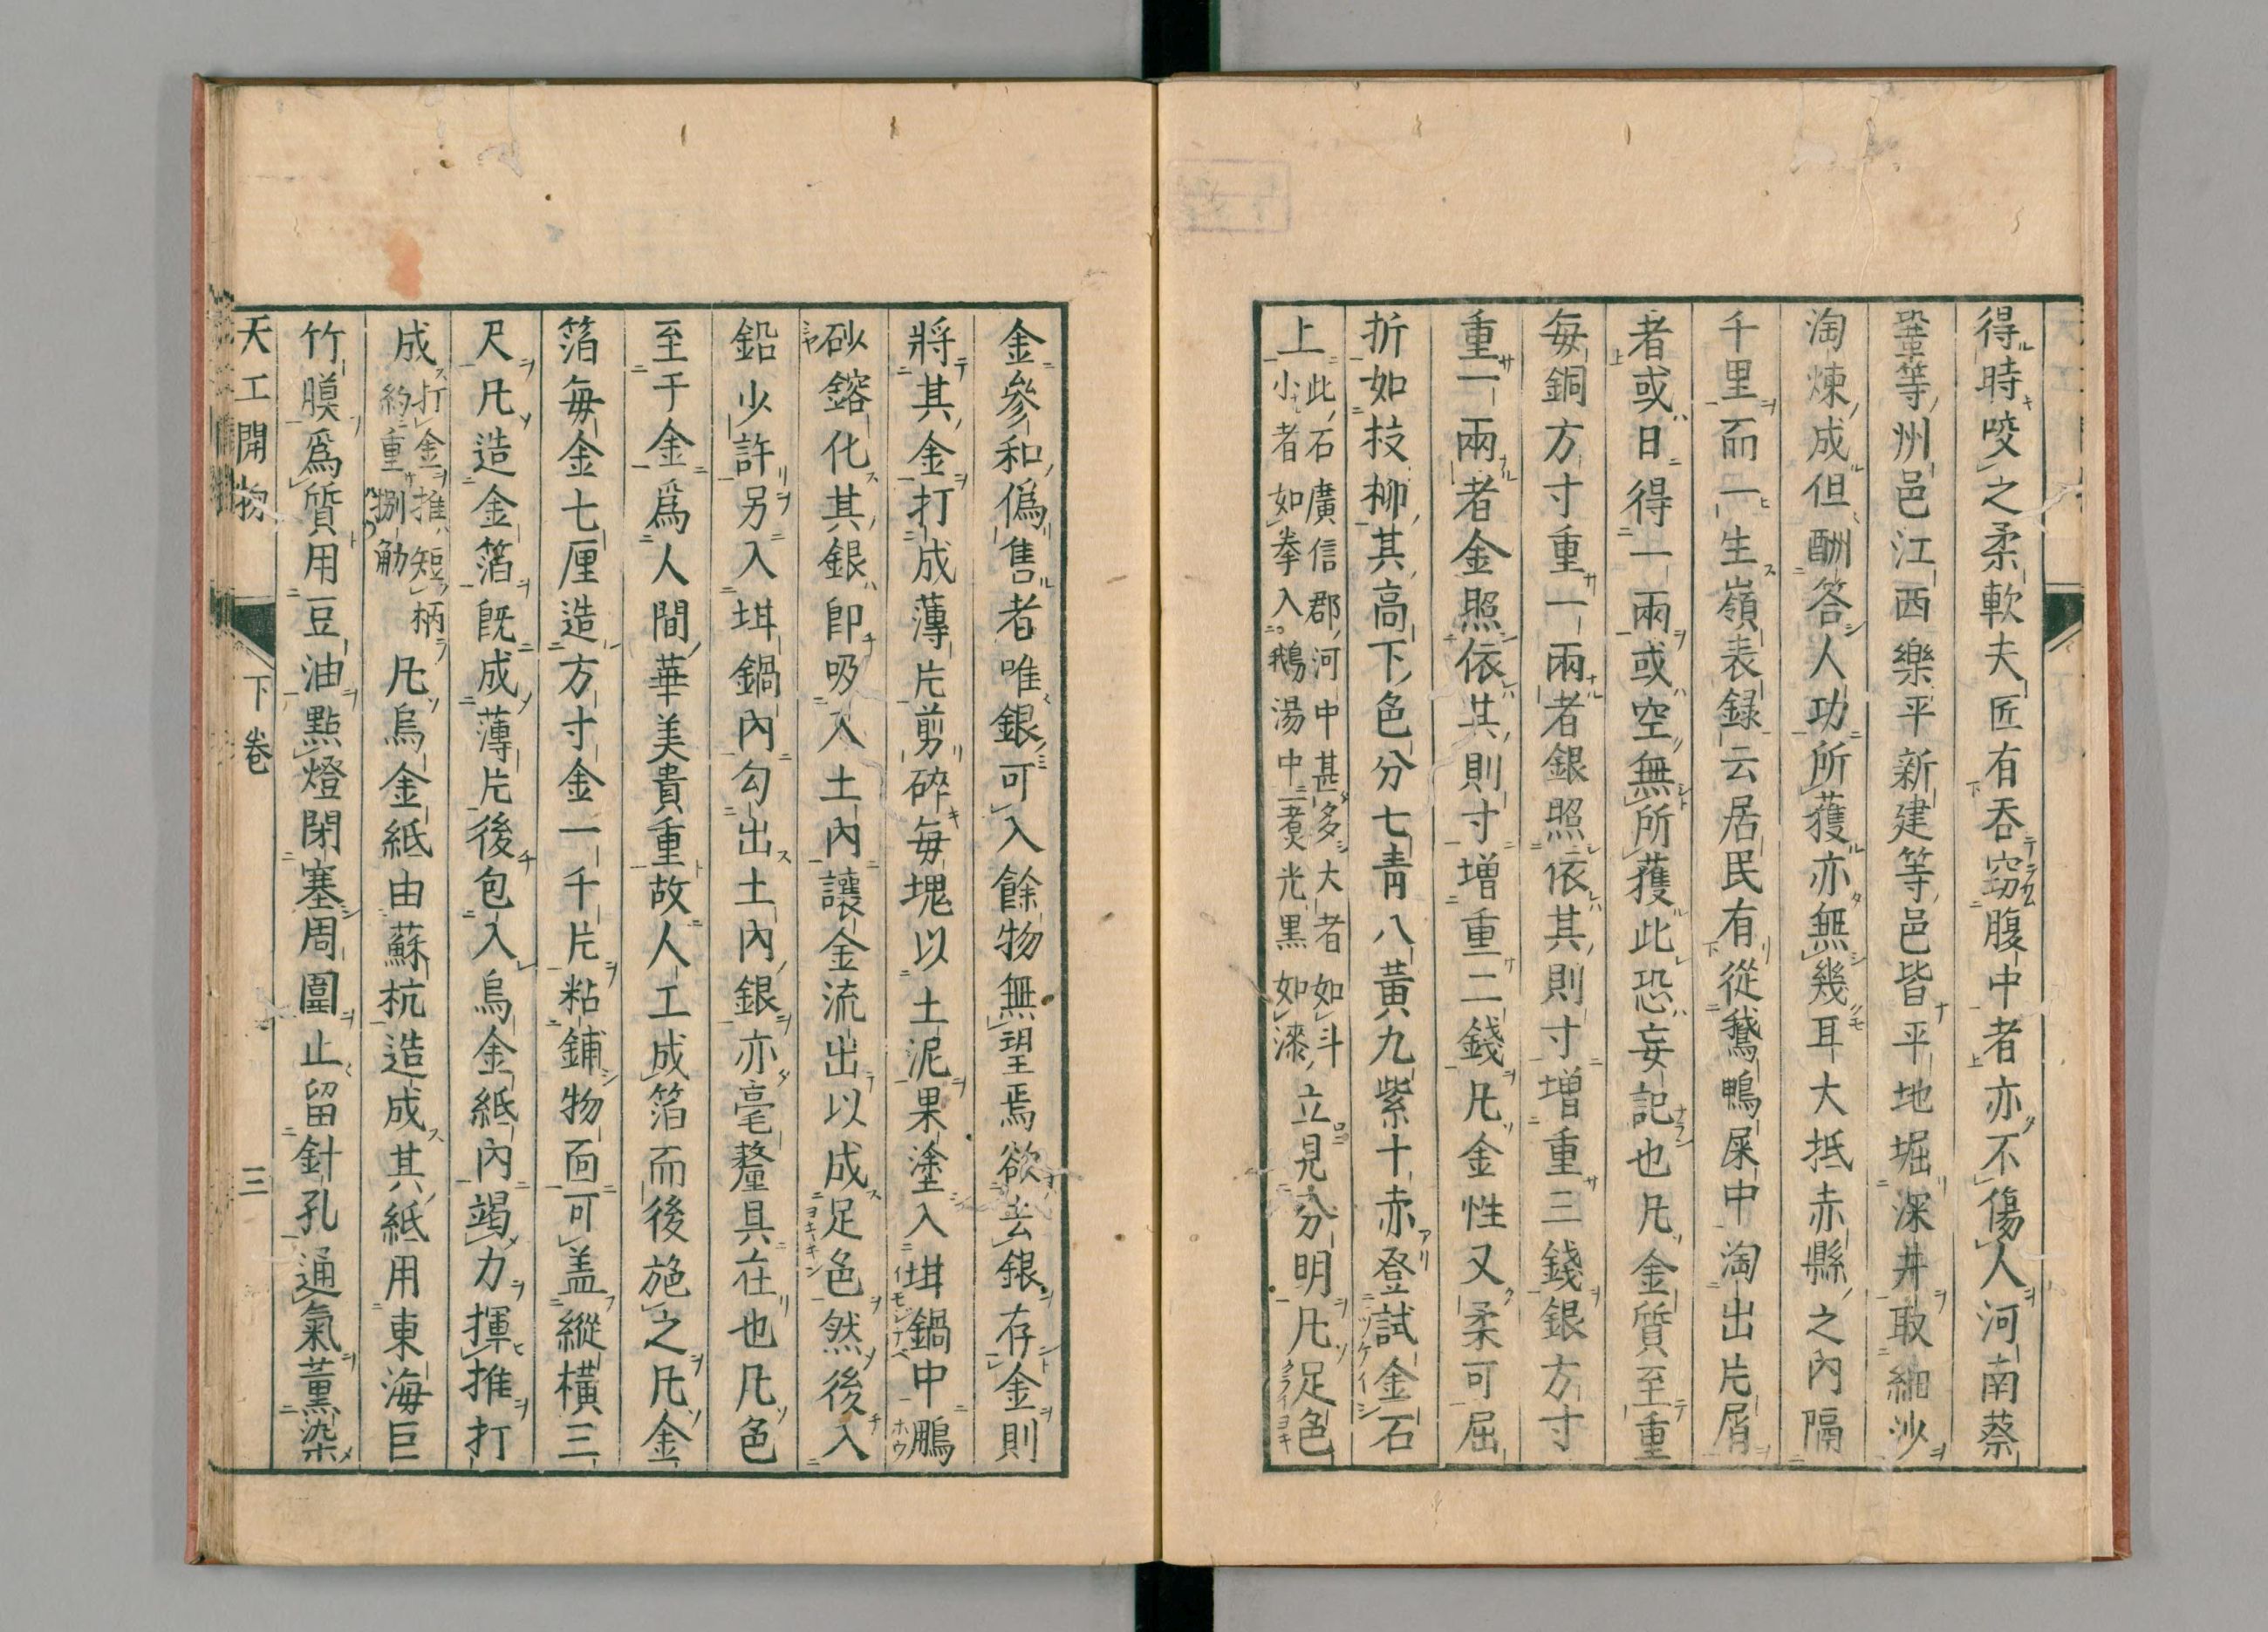 得時咬之柔軟夫匠有吞竊腹中者亦不傷人河南蔡
鞏等州邑江西樂平新建等邑皆平地堀深井取細沙
淘煉成但酬答人功所獲亦無幾耳大抵赤縣之內隔
千里而一生嶺表録云居民有從鵞鴨屎中淘出片屑
者或日得一兩或空無所獲此恐妄記也凡金質至重
每銅方寸重一兩者銀照依其則寸增重三錢銀方寸
重一兩者金照依其則寸增重二錢凡金性又柔可屈
折如枝柳其高下色分七青八黃九紫十赤登試金石
上此石廣信郡河中甚多大者如斗
小者如拳入鵝湯中一煮光黑如漆立見分明凡足色
金參和僞售者唯銀可入餘物無望焉欲去銀存金則
將其金打成薄片剪碎每塊以土泥果塗入坩鍋中鵬
砂鎔化其銀即吸入土內讓金流出以成足色然後入
鉛少許另入坩鍋內勾出土內銀亦毫釐具在也凡色
至于金爲人間華美貴重故人工成箔而後施之凡金
箔每金七厘造方寸金一千片粘鋪物面可盖縱橫三
尺凡造金箔既成薄片後包入烏金紙內竭力揮推打
成打金推短柄
約重捌觔凡烏金紙由蘇杭造成其紙用東海巨
竹膜爲質用豆油點燈閉塞周圍止留針孔通氣薰染
天工開物 下卷 三